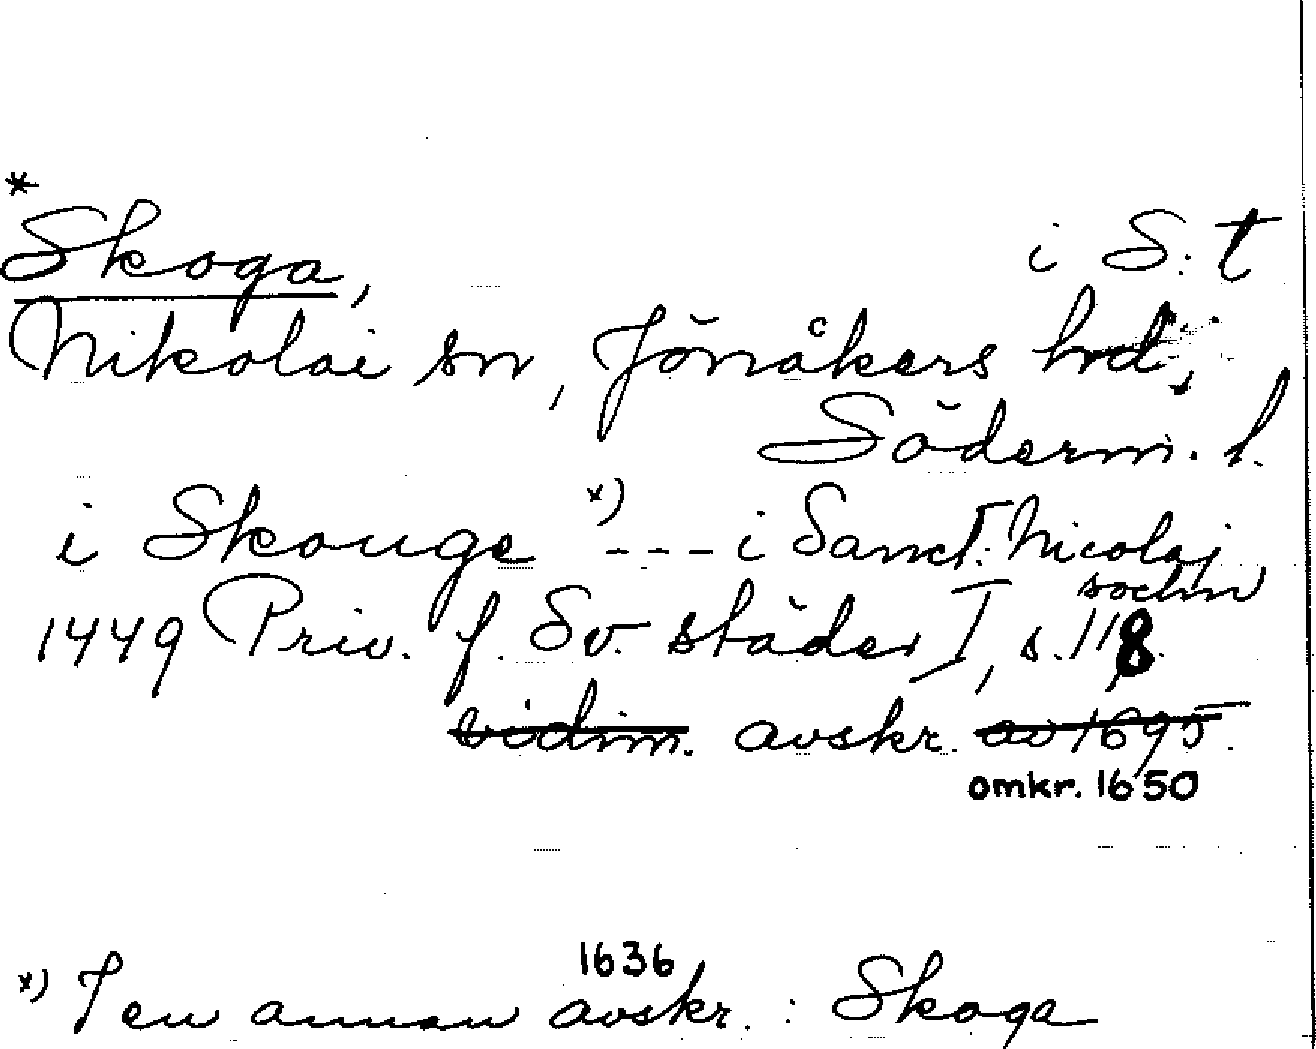 *
Skoga, i S:t
Nikolai sn, Jönåkers hd,
Söderm. l.
i Skouge x) --- i Sanct. Nicolaj
sochn
1449 Priv. f. Sv. städer I, s. 118.
vidim. avskr. av 1695.
omkr. 1650
1636
x) I en annan avskr. : Skoga